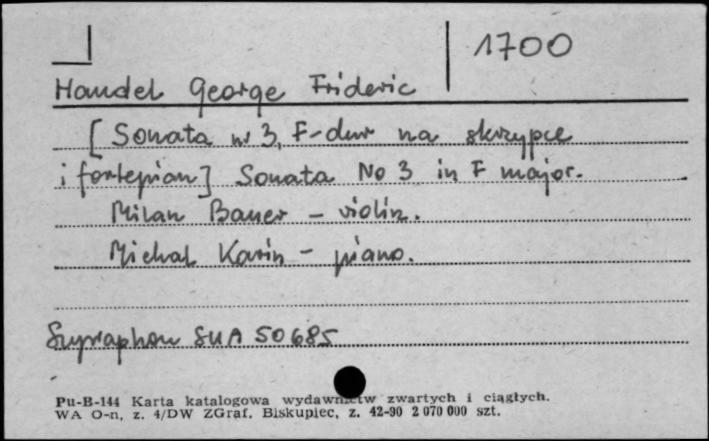 1700
Handel George Frideric
[Sonata nr 3, F-dur na skrzypce
i fortepian] Sonata No 3 in F major.
Milan Bauer - violin.
Michal Karin - piano.
Supraphon SUA 50685
Pu-B-144 Karta katalogowa wydawnictw zwartych i ciągłych.
WA O-n, z. 4/DW ZGraf. Biskupiec, z. 42-90 2 070 000 szt.